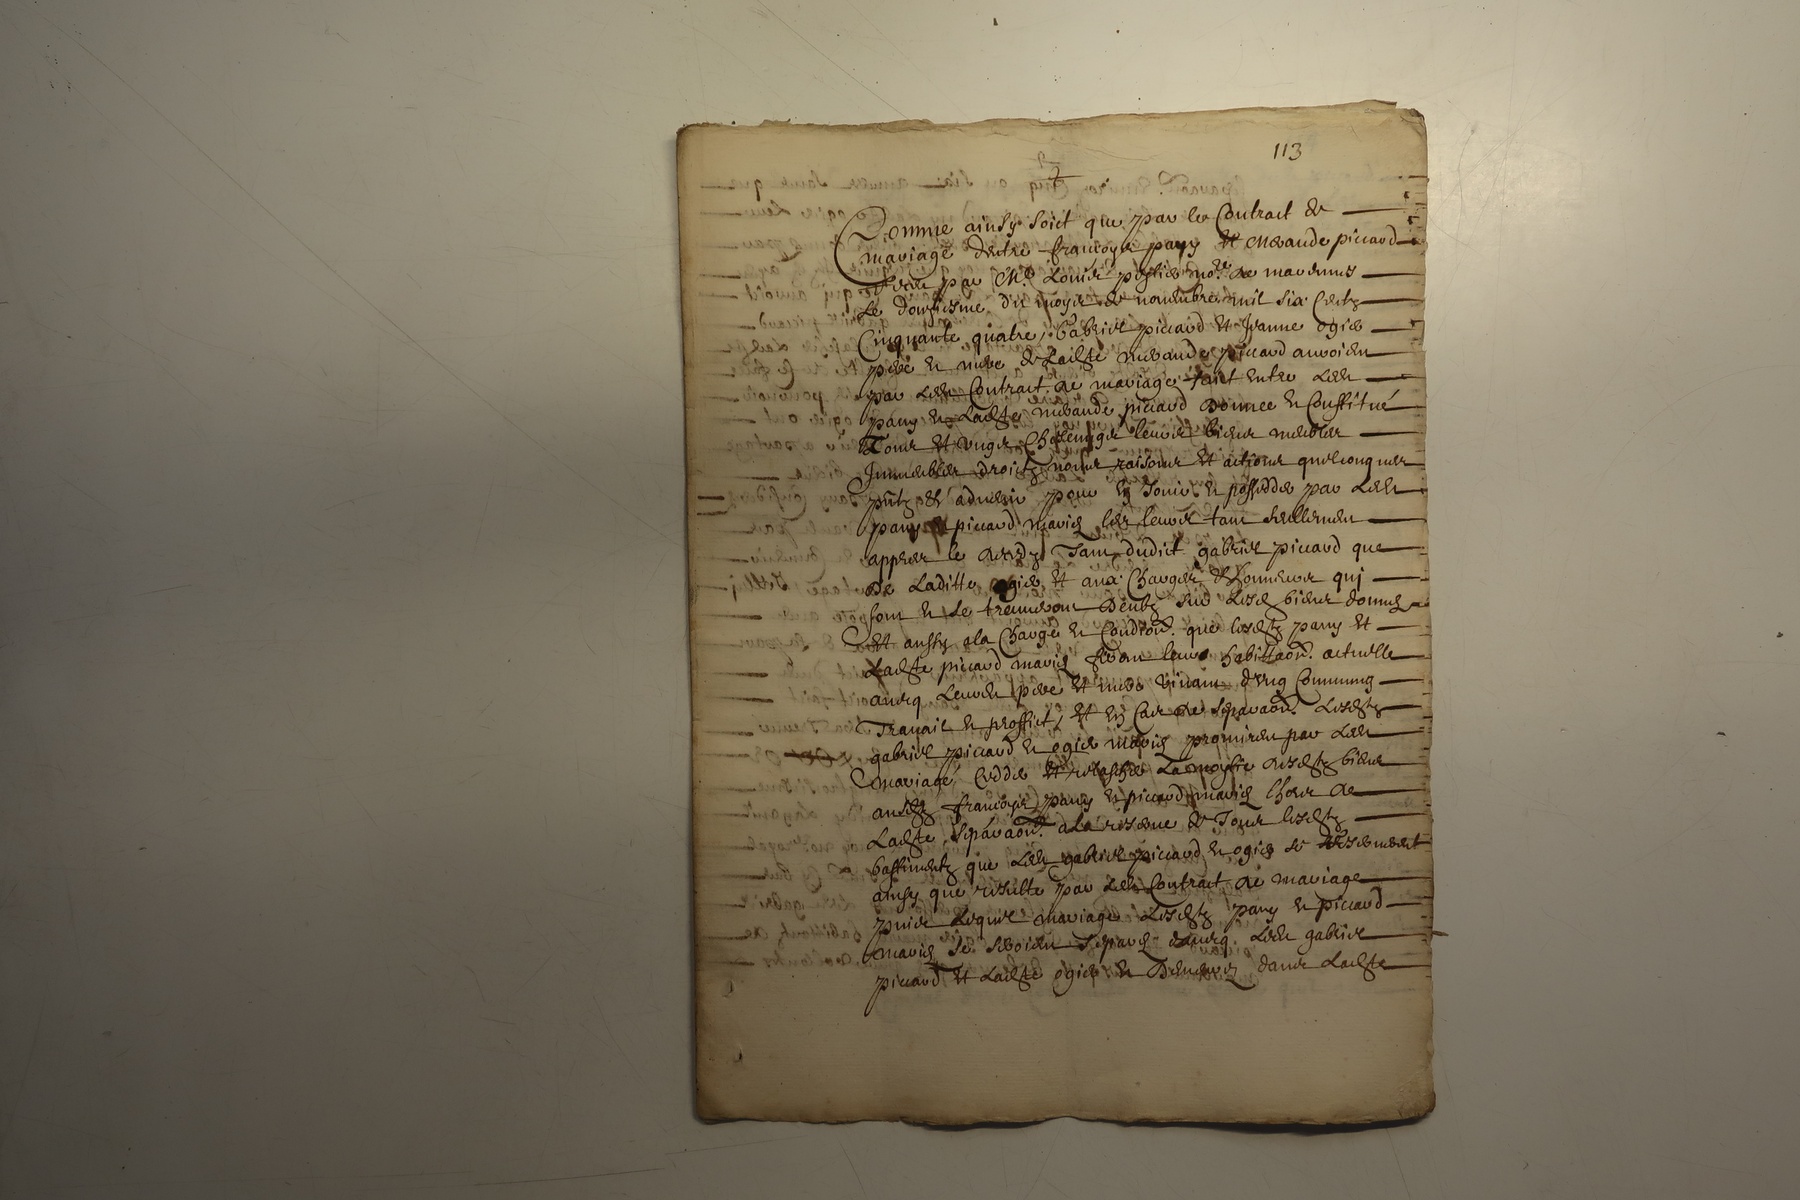 113
Comme ainsy soict que par le Contract de
mariage dentre francoys pany et Merande piccard
par Me Louis nore de marennes
Le douziesme du moys de novembre mil six Centz
Cinquante quatre, Gabriel piccard et Jeanne ogier
pere et mere de Ladte merande piccard auroien
par Contract de mariage faict entre
pany et Ladte merande piccard donnee et Constitué
Tous et ungs Chascungs leurs biens meubles
Immeubles droictz noms raisons et actions quelconques
pntz et advenir pour en Jouir et posseder par
pany et piccard mariez les leurs tan seullemen
appres le decedz Tam dudict gabriel piccard que
de Laditte ogier et aux Charges dhonneurs qui
son et se trouveron deubz sur biens donnez
Et aussy a la Charge et Condion. que lesdtz pany et
Ladte piccard mariez feron leur habittaon. actuelle
avecq leurs pere et mere vivam dung Commung
Travail et proffict, et en Cas de separaon. Lesdtz
gabriel piccard et ogier mariez promiren par
mariage Cedder et relascher La moytie desdtz biens
ausdtz francoys pany et piccard mariez lhors de
Ladte separaon. a la reserve de Tous lesdtz
bastimentz que gabriel piccard et ogier se reserverent
ainsy que resulte par Contract de mariage
puis Lequel mariage Lesdtz pany et piccard
mariez se seroien separez davecq gabriel
piccard et Ladte ogier et dans Ladte